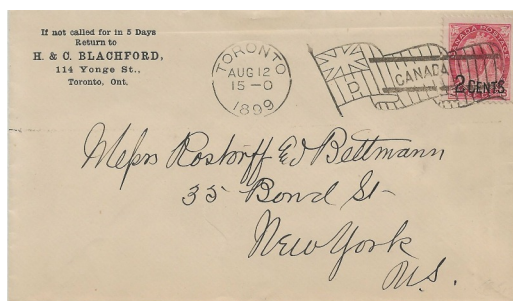 If not called for in 5 Days
Return to
H. & C. BLACHFORD,
114 Yonge St.,
Toronto, Ont.
TORONTO
AUG 12
15-0
1899
D
CANADA
2 CENTS
Messrs Rostorff & Bettmann
35 Bond St
New York
U.S.